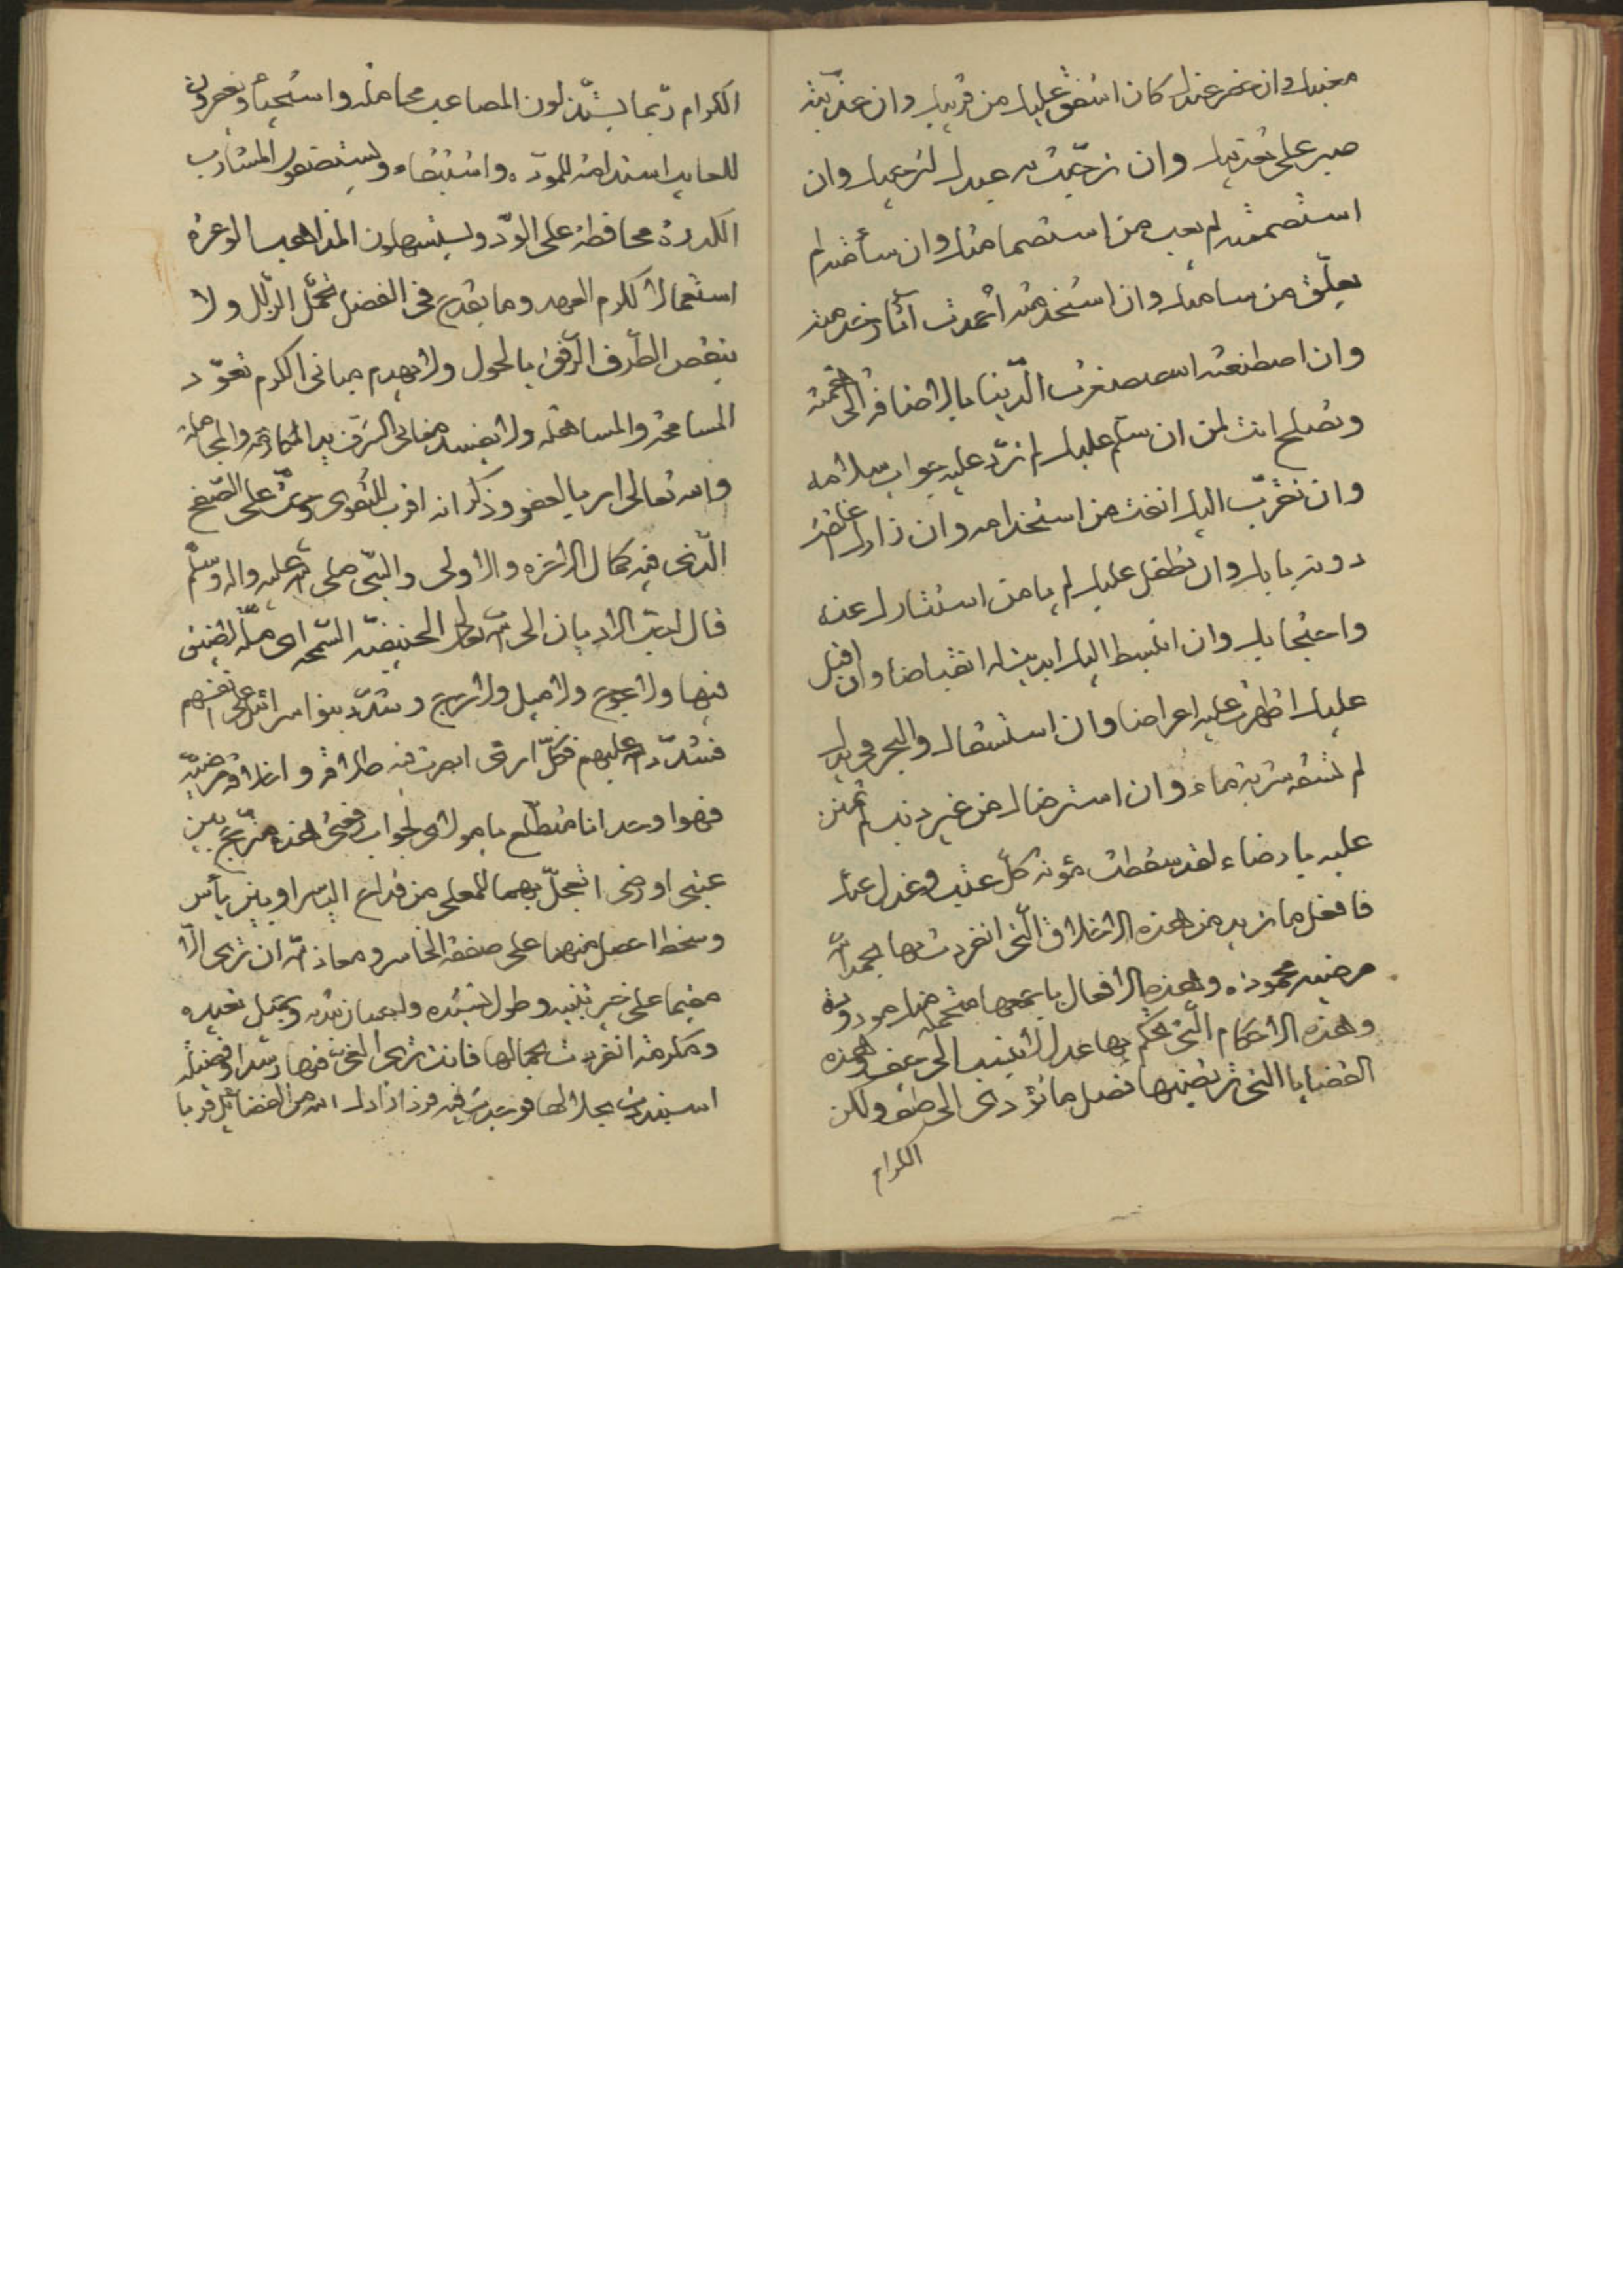 مغيبك وان حضر عندك كان اشفق عليك من قريبك وان عذبته
صبر على تعذيبك وان ترحمت به عبدك لترحمك وان
استصمته لم يعب من استصمامك وان سأمته لم
يعلق من سامتك وان استخدمته احمدت آثار خدمته
وان اصطنعته استصغرت الدنيا بالاضافة الى همته
وتصلح انت لمن ان سلم عليك لم ترد عليه جواب سلامه
وان تقرب اليك انفت من استخدامه وان زارك
دونه بابك وان تطفل عليك لم يامن استثارك عنه
واحتجابك وان انبسط اليك ابديت له انقباضا وان اقبل
عليك اظهرت عليه اعراضا وان استسقاك والبحر في يدك
لم تسقه شربة ماء وان استرضاك من غير ذنب لم تمنن
عليه بارضاء لقد سقطت مؤنة كل عتب
فافعل ما تريد من هذه الاخلاق التي انفردت بها بحمد الله
مرضية محمودة وهذه الافعال باجمعها متحملة منك مودودة
وهذه الاحكام التي تحكم بها عدل لا ينسب الى حيف وهذه
القضايا التي ترتضيها فصل ما تؤدى الى ولكن
الكرام
الكرام ربما يستذلون المصاعب مجاملة واستحياء ويغصرون
للمودة واستبقاء ويستصفون المشارب
الكدرة محافظة على الود ويستسهلون المذاهب الوعرة
استعمالا لكرم العهد وما يقدح في الفضل تحمل الزلل ولا
ينقص الطرف الرفق بالحول ولا يهدم مباني الكرم تعود
المسامحة والمساهلة ولا يفسد معاني الشرف المكارمة والمجاملة
والله تعالى امر بالعفو وذكر انه اقرب للتقوى وحث على الصفح
الذي فيه كمال الاخرة والاولى والنبي صلى الله عليه واله وسلم
قال احب الاديان الى الله تعالى الحنيفية السمحة اى ملة لا ضيق
فيها ولا عوج ولا ميل ولا حرج وشدد بنوا اسرائيل على انفسهم
فشدد الله عليهم فكل امر في
فهو اوحد انا متطلع يا مولاى لجواب رقعتى هذه مترجح بين
عتبى او رضى اتعجل بهما المعلى من قداح الياسر او بين يأس
وسخط احصل منهما على صفقة الخاسر ومعاذ الله ان ترى الا
مقيما على خير تبنيه وطول تشيده وتجمل تعيده
ومكرمة انفردت بجمالها فانت ترى فيها رشدا وفضيلة
استبددت بجلالها زادك الله من الفضائل قربا